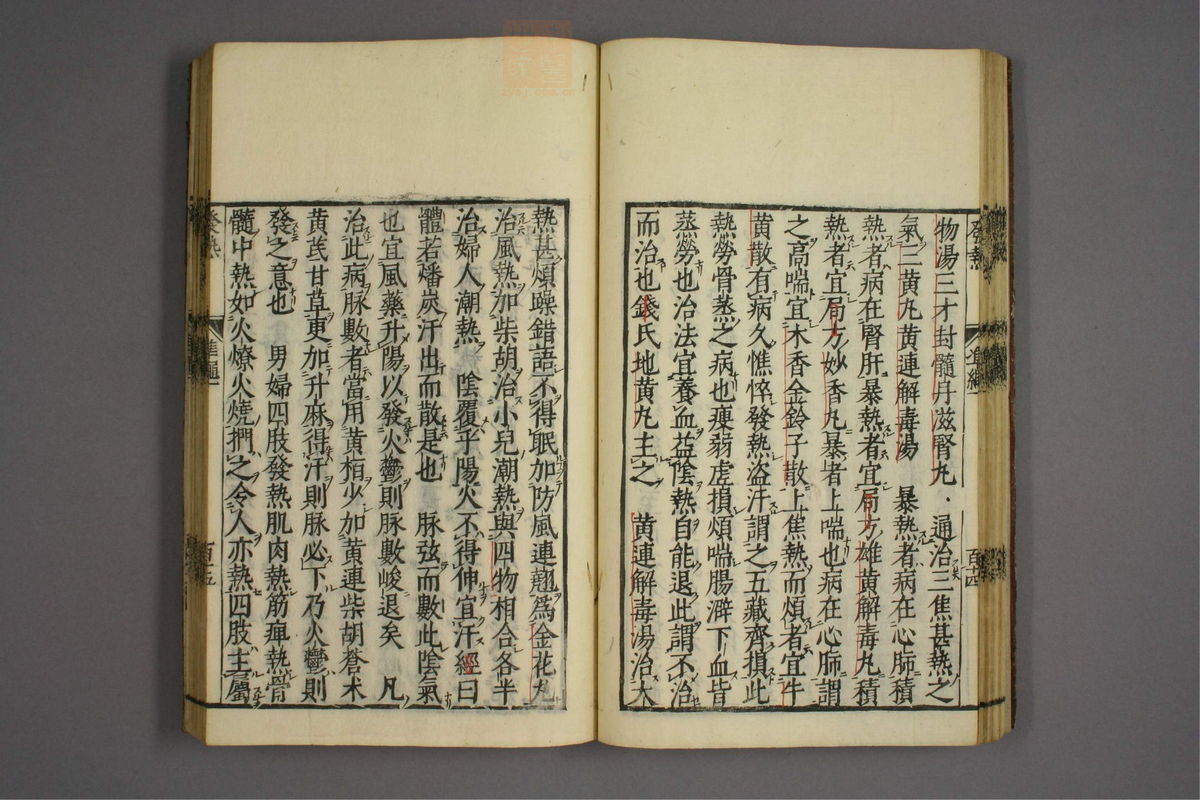 物湯三才封髓丹滋腎丸．通治三焦甚熱之
氣三黄丸黄連解毒湯 暴熱者病在心肺積
熱者病在腎肝暴熱者宜局方雄黄解毒丸積
熱者宜局方妙香丸暴者上喘也病在心肺謂
之高喘宜木香金鈴子散上焦熱而煩者宜牛
黄散有病久憔悴發熱盗汗謂之五藏齊損此
熱勞骨蒸之病也瘦弱虚損煩喘腸澼下血皆
蒸勞也治法宜養血益陰熱自能退此謂不治
而治也錢氏地黄丸主之 黄連解毒湯治大
發熱
百十四
熱甚煩躁錯語不得眠加防風連翹爲金花丸
治風熱加柴胡治小兒潮熱與四物相合各半
治婦人潮熱 陰覆乎陽火不得伸宜汗經曰
體若燔炭汗出而散是也 脉弦而數此陰氣
也宜風藥升陽以發火鬱則脉數峻退矣 凡
治此病脉數者當用黄栢少加黄連柴胡蒼术
黄芪甘草更加升麻得汗則脉必下乃火鬱則
發之意也 男婦四肢發熱肌肉熱筋痺熱骨
髓中熱如火燎火燒捫之令人亦熱四肢主屬
發熱
百十五
zysj.com.cn